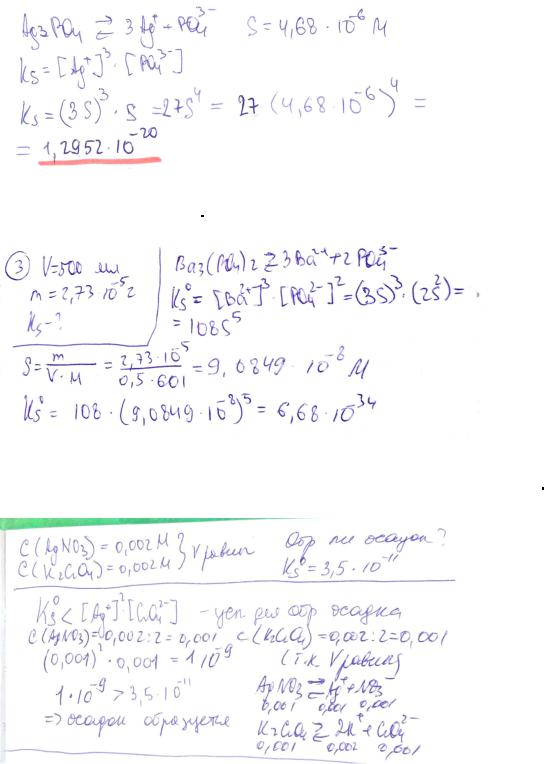 Ag3PO4 ⇄ 3Ag⁺ + PO4³⁻ S = 4,68 · 10⁻⁶ M
Ks = [Ag⁺]³ · [PO4³⁻]
Ks = (3S)³ · S = 27S⁴ = 27 (4,68 · 10⁻⁶)⁴ =
= 1,2952 · 10⁻²⁰
③ V=500 мл
m = 2,73 · 10⁻⁵ г
Ks - ?
Ba3(PO4)2 ⇄ 3Ba²⁺ + 2PO4³⁻
Ks⁰ = [Ba²⁺]³ · [PO4²⁻]² = (3S)³ · (2S²) =
= 108S⁵
S = m / V · M = 2,73 · 10⁻⁵ / 0,5 · 601 = 9,0849 · 10⁻⁸ M
Ks⁰ = 108 · (9,0849 · 10⁻⁸)⁵ = 6,68 · 10⁻³⁴
C(AgNO3) = 0,002 M } V равны Обр ли осадок?
C(K2CrO4) = 0,002 M Ks⁰ = 3,5 · 10⁻¹¹
Ks⁰ < [Ag⁺]² [CrO4²⁻] - усл для обр осадка
C(AgNO3) = 0,002 : 2 = 0,001 C(K2CrO4) = 0,002 : 2 = 0,001
(0,001)² · 0,001 = 1 · 10⁻⁹ (т.к. V равны)
1 · 10⁻⁹ > 3,5 · 10⁻¹¹
AgNO3 ⇄ Ag⁺ + NO3⁻
0,001 0,001 0,001
⇒ осадок образуется
K2CrO4 ⇄ 2K⁺ + CrO4²⁻
0,001 0,002 0,001